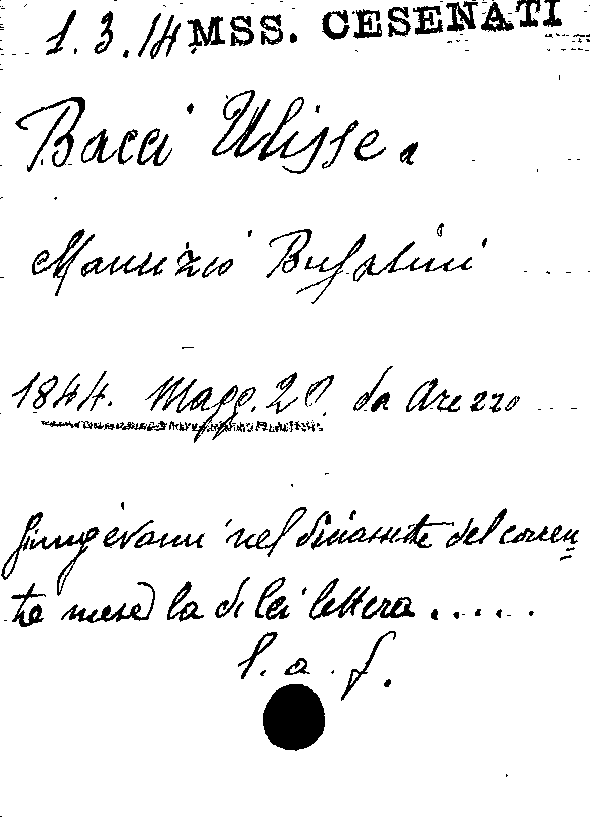 1.3.14 MSS. CESENATI
Bacci Ulisse a
Maurizio Bufalini
1844. Magg. 20. da Arezzo
Giungevami nel diciassette del corren=
te mese la di lei lettera .....
l. a. f.